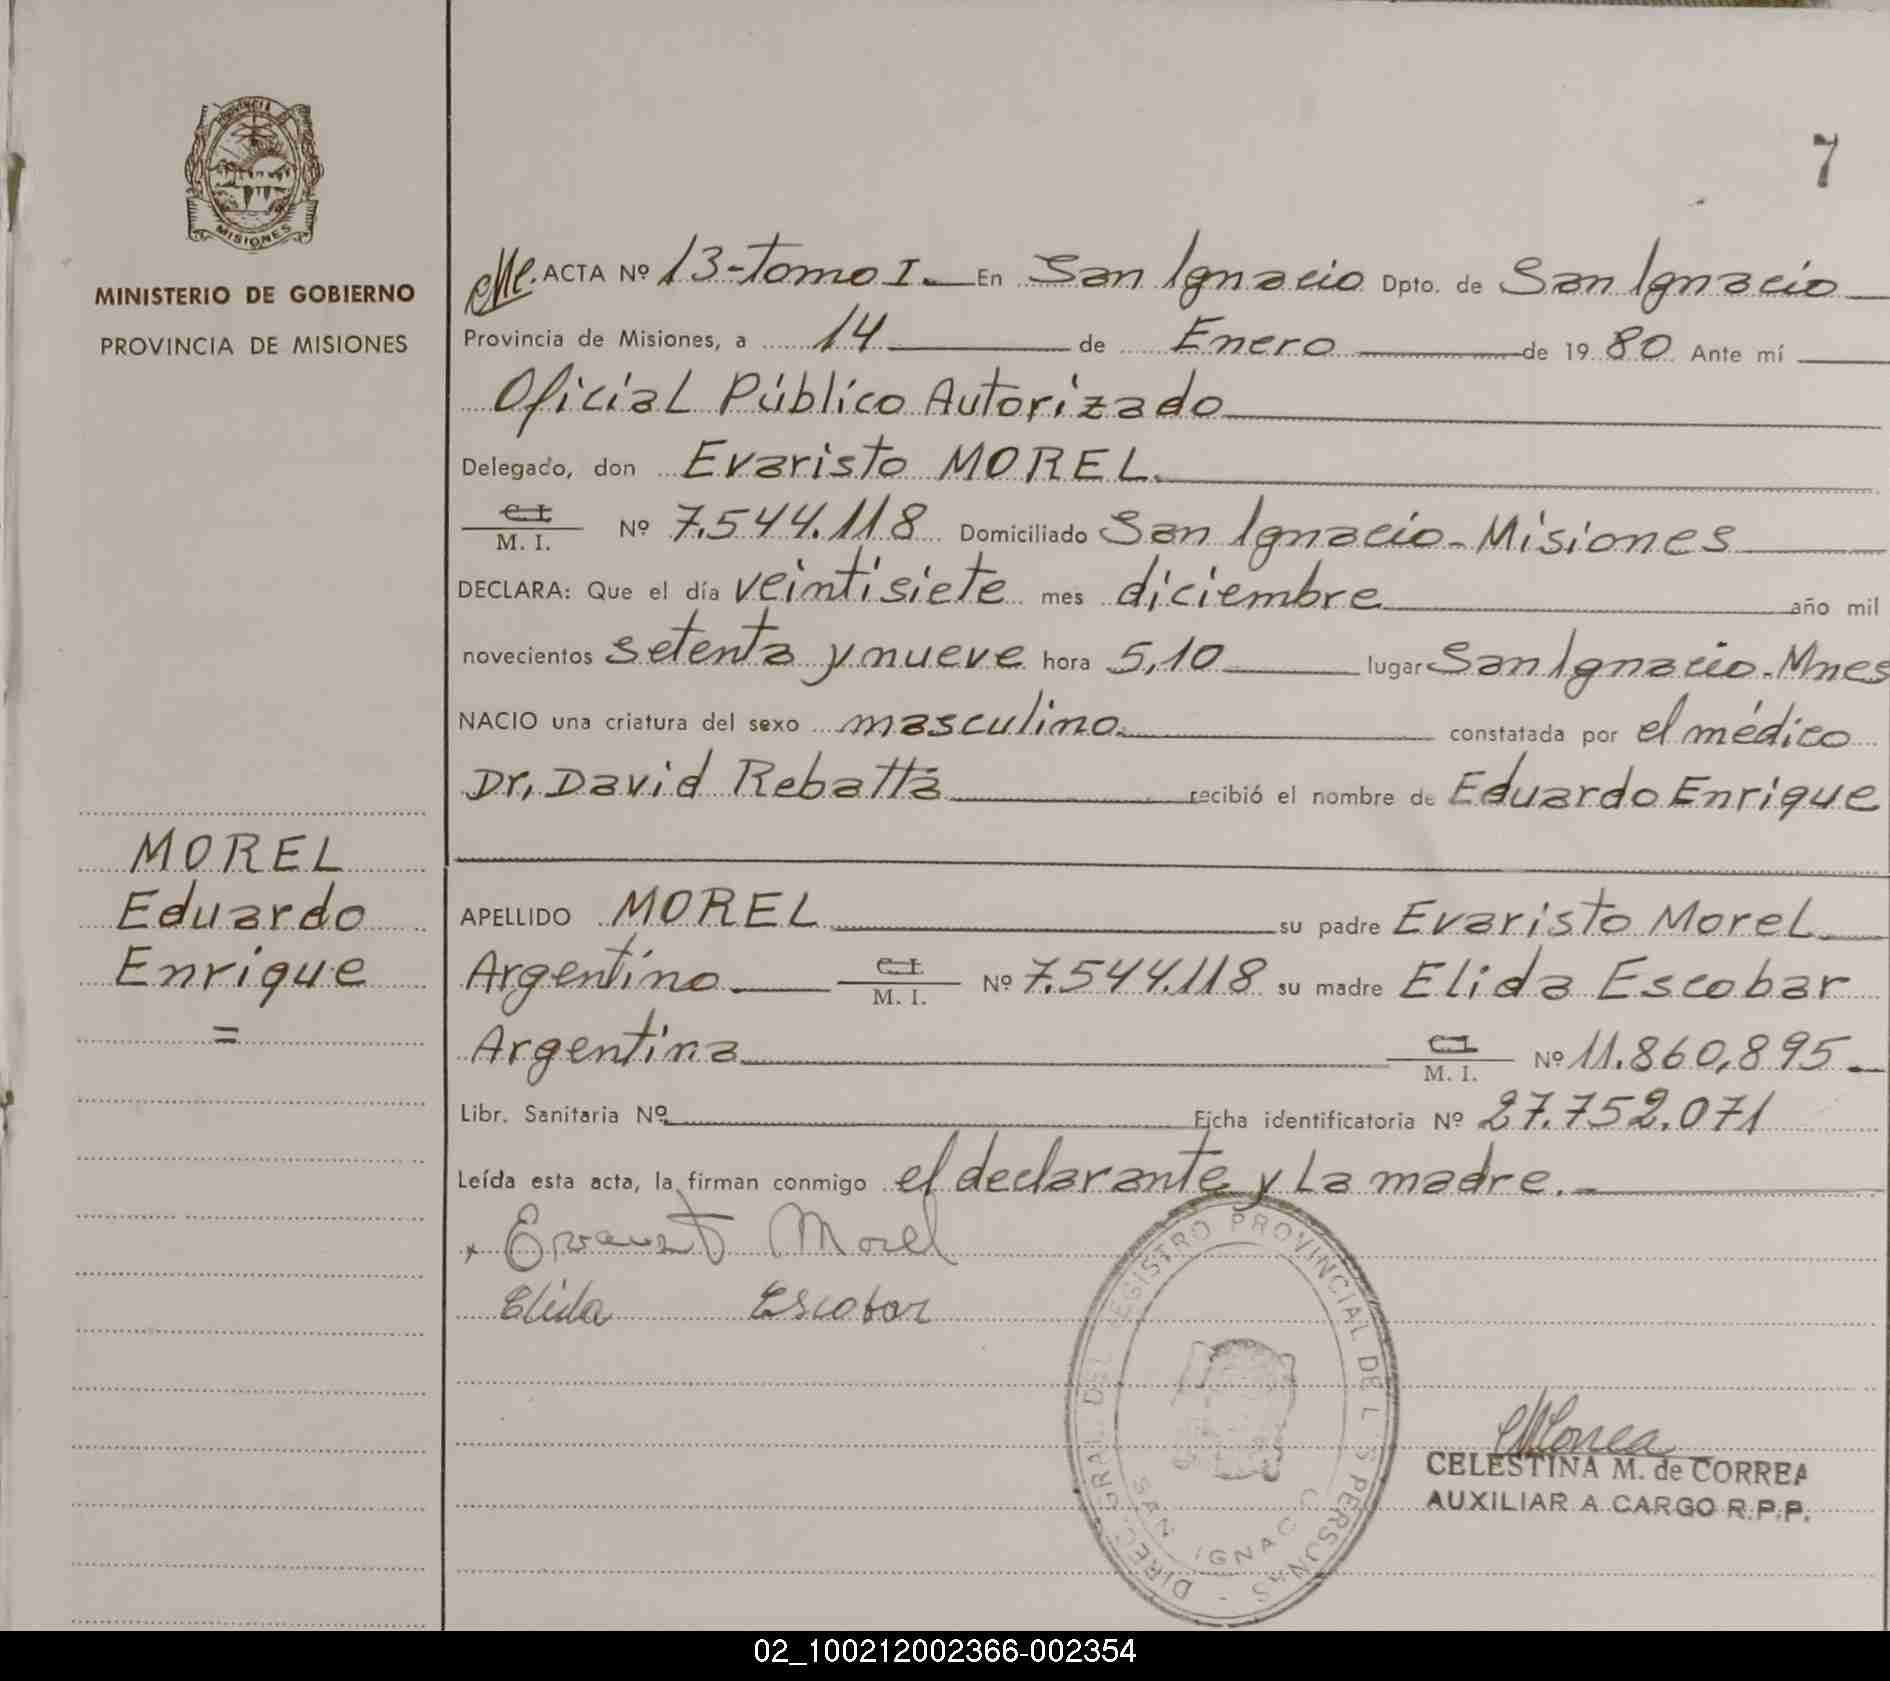 PROVINCIA DE
MISIONES
MINISTERIO DE GOBIERNO
PROVINCIA DE MISIONES
MOREL
Eduardo
Enrique
=
7
ACTA Nº 13-tomo I.- En San Ignacio Dpto. de San Ignacio
Provincia de Misiones, a 14 de Enero de 1980 Ante mí
Oficial Público Autorizado
Delegado, don Evaristo MOREL.
C.I. M. I. Nº 7.544.118 Domiciliado San Ignacio-Misiones
DECLARA: Que el día veintisiete mes diciembre año mil
novecientos setenta y nueve hora 5,10 lugar San Ignacio.Mnes
NACIO una criatura del sexo masculino. constatada por el médico
Dr. David Rebattá recibió el nombre de Eduardo Enrique
APELLIDO MOREL su padre Evaristo Morel
Argentino C.I. M. I. Nº 7.544.118 su madre Elida Escobar
Argentina C.I. M. I. Nº 11.860,895.-
Libr. Sanitaria Nº Ficha identificatoria Nº 27.752.071
Leída esta acta, la firman conmigo el declarante y La madre.-
x Evaristo Morel
Elida Escobar
DIREC. GRAL. DEL REGISTRO PROVINCIAL DE L S PERSONAS -
SAN IGNACIO
CELESTINA M. de CORREA
AUXILIAR A CARGO R.P.P.
02_100212002366-002354